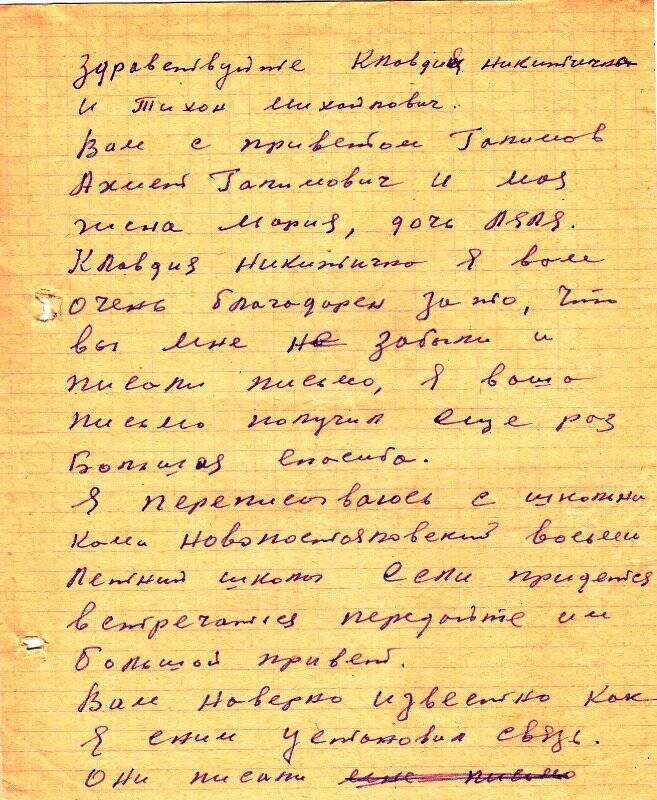 Здравствуйте Клавдия Никитична
и Тихон Михайлович.
Вам с приветом Галимов
Ахмет Галимович и моя
жена Мария, дочь Ляля.
Клавдия Никитично я вам
очень благодарен за то, что
вы мне не забыли и
писали письмо, я ваша
письмо получил еще раз
большая спасиба.
Я переписываюсь с школьни
ками Новопостояловский восьми
летний школы Если придется
встречатся передайте им
большой привет.
Вам наверно известно как
я сним установил связь.
Они писали мне письмо